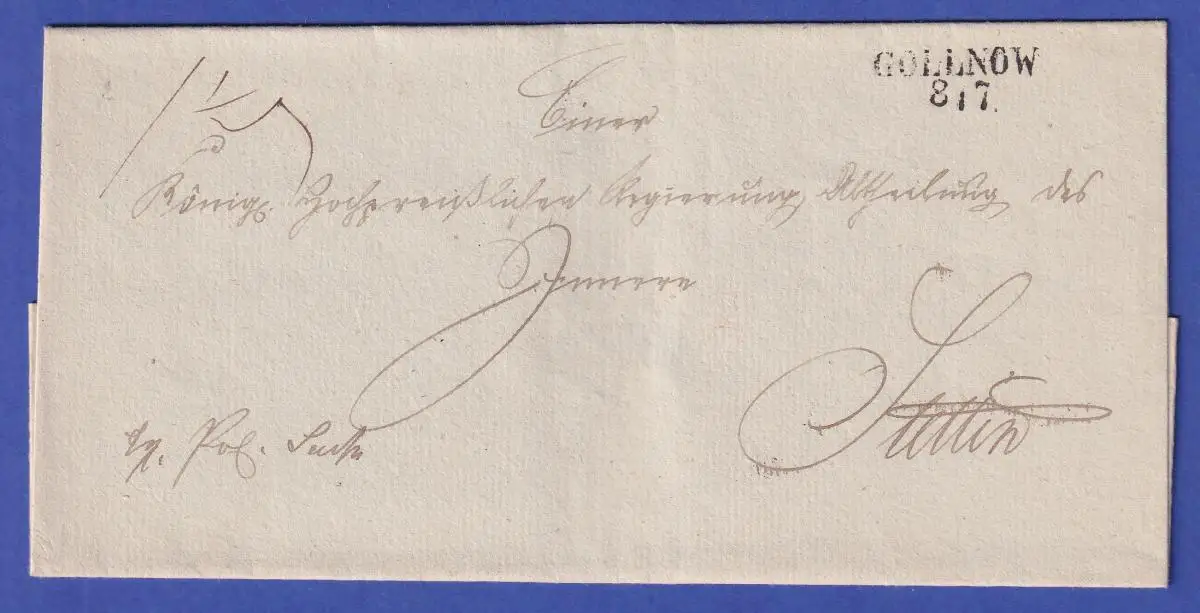 GOLLNOW
8 / 7.
Einer
Königl. Hochpreißlichen Regierung Abtheilung des
Innern
Stettin
Pol. Sache